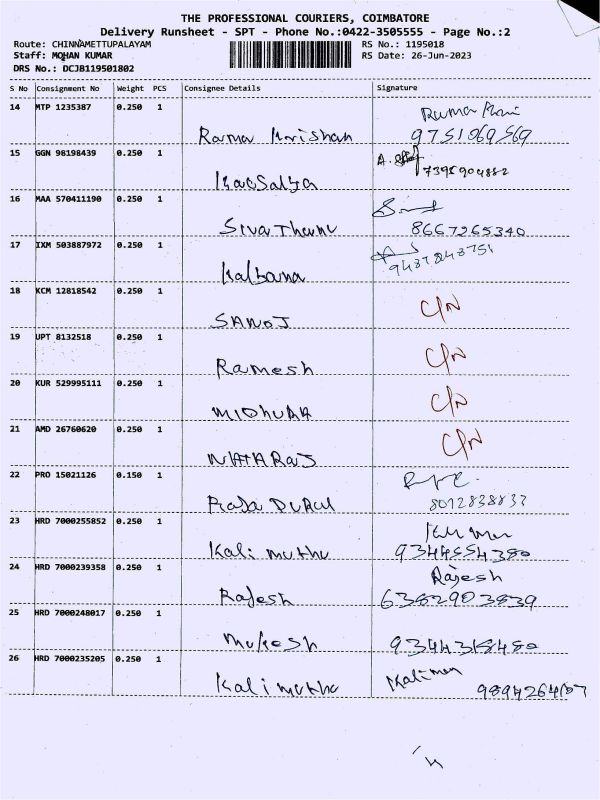 THE PROFESSIONAL COURIERS, COIMBATORE
Delivery Runsheet - SPT - Phone No.:0422-3505555 - Page No.:2
Route: CHINNAMETTUPALAYAM RS No.: 1195018
Staff: MOHAN KUMAR RS Date: 26-Jun-2023
DRS No.: DCJB119501802
S No Consignment No Weight PCS Consignee Details Signature
14 MTP 1235387 0.250 1
Rama Krishan 9751069569
15 GGN 98198439 0.250 1
Kaosalya
16 MAA 570411190 0.250 1
SivaThanu 8667265340
17 IXM 503887972 0.250 1
Kalbana
18 KCM 12818542 0.250 1 C/N
SANOJ
19 UPT 8132518 0.250 1 C/N
Ramesh
20 KUR 529995111 0.250 1 C/N
21 AMD 26760620 0.250 1 C/N
NATARaJ
22 PRO 15021126 0.150 1
8012838833
23 HRD 7000255852 0.250 1
Kali muthu 9344554380
24 HRD 7000239358 0.250 1 Rajesh
Rajesh 6382903839
25 HRD 7000248017 0.250 1
Mukesh 9344318480
26 HRD 7000235205 0.250 1
Kalimuthu